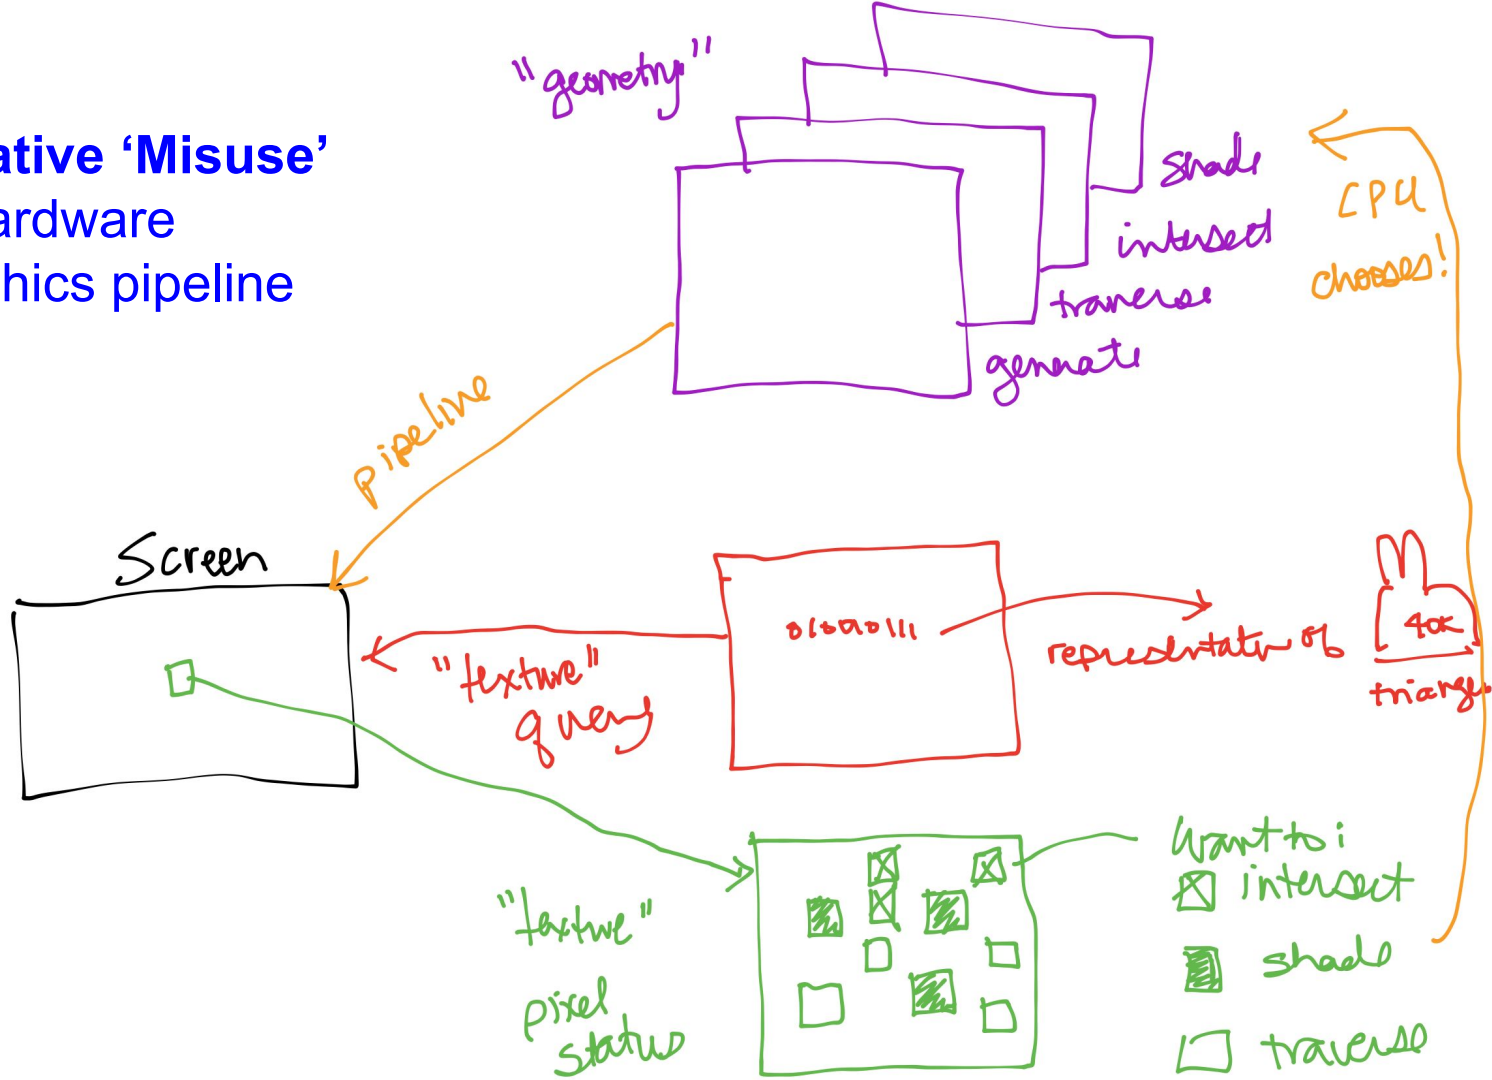 ative ‘Misuse’
ardware
hics pipeline
"geometry"
shade
intersect
traverse
generate
CPU
chooses!
pipeline
Screen
"texture"
query
010100111
representation of
40K
triangles
"texture"
pixel
status
Want to:
intersect
shade
traverse